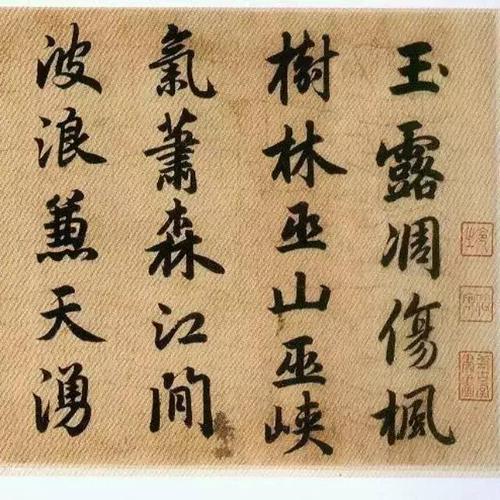 玉露凋傷楓
樹林巫山巫峽
氣蕭森江間
波浪兼天湧